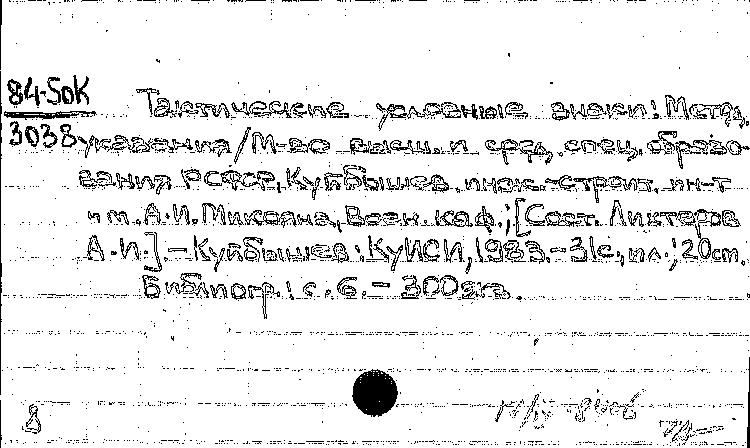 84-5ок
3038
Тактические условные знаки: Метод.
указания/М-во высш. и сред. спец. образо-
вания РСФСР, Куйбышев. инж.-строит. ин-т
им. А.И. Микояна, Воен. каф.; [Сост. Ликтеров
А.И.]. – Куйбышев: КуИСИ, 1983. – 31с., ил.; 20см.
Библиогр.: с. 6. – 300экз.